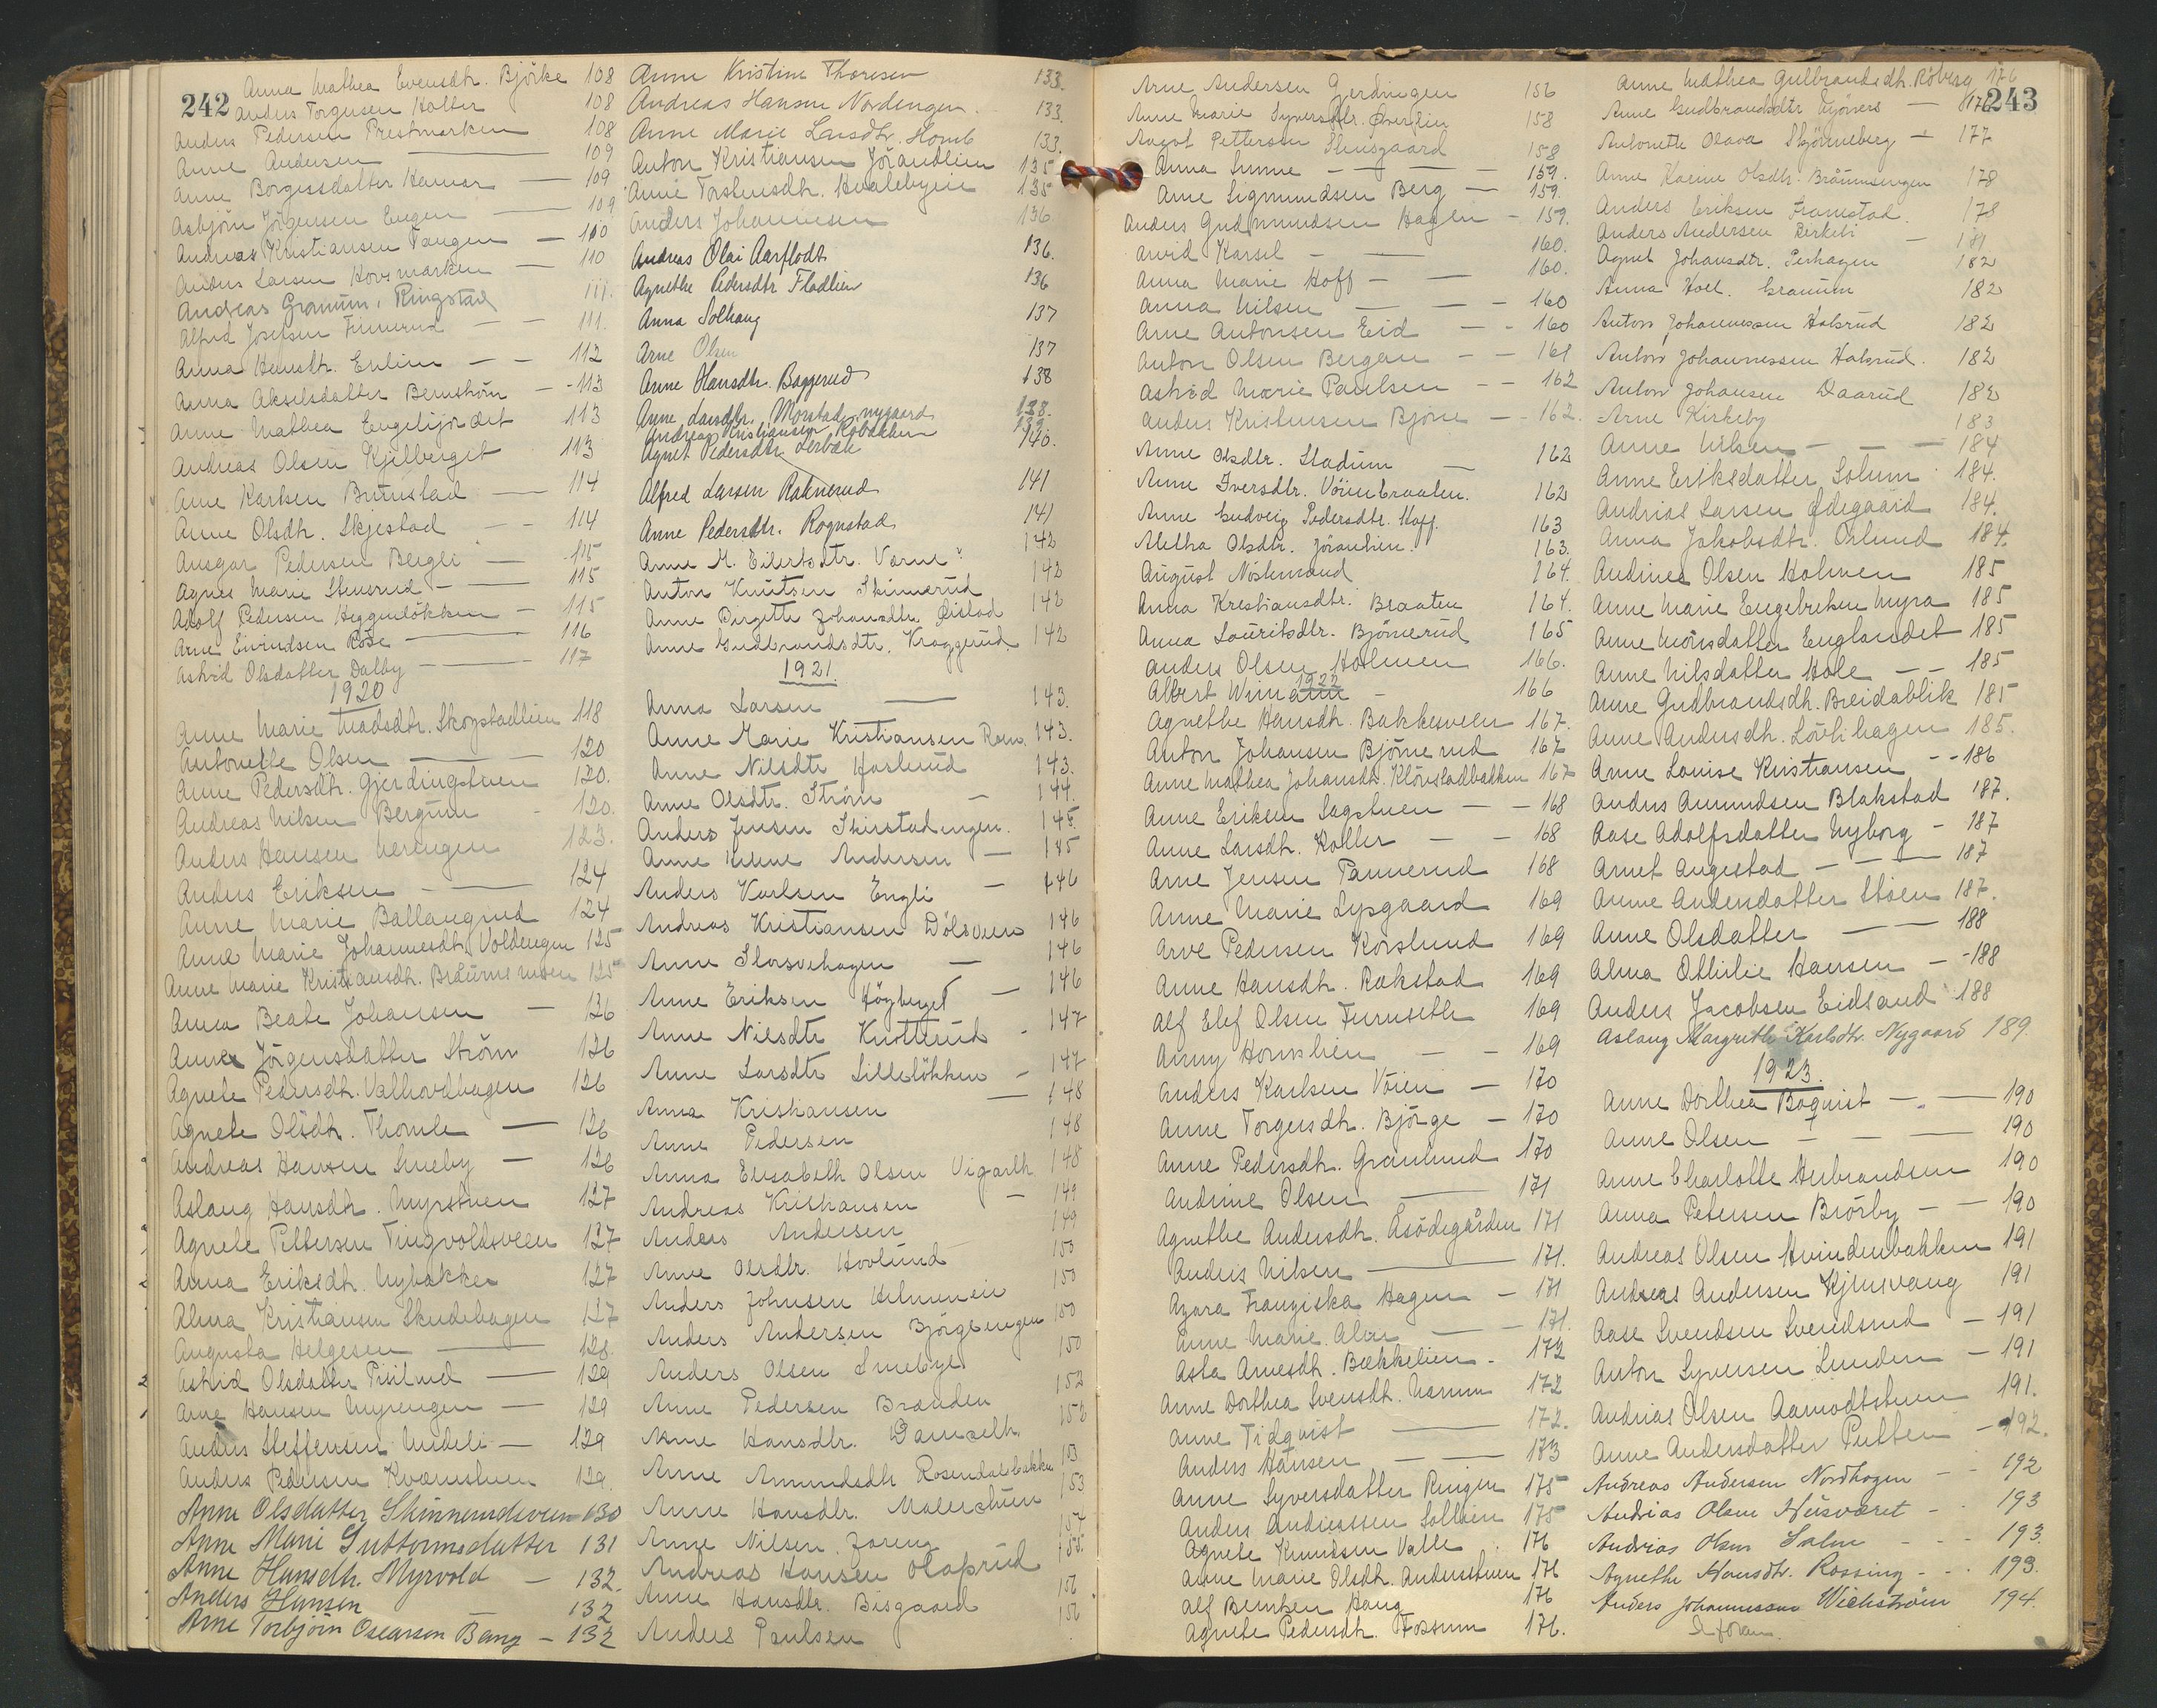 242
Anna Mathea Evensdtr. Björke 108
Anders Torgersen Koller 108
Anders Pedersen Prestmarken 108
Anne Andersen 109
Anne Borgersdatter Hamar 109
Asbjörn Jörgensen Engen 109
Andreas Kristiansen Tangen 110
Anders Larsen Hovsmarken 110
Andreas Granum, Ringstad 111.
Alfred Josefsen Finnerud 111.
Anna Hansdtr. Enlien 112
Anna Akselsdatter Bernström 113
Anne Mathea Engelijordet 113
Andreas Olsen Kjilberget 113
Arne Karlsen Burustad 114
Anne Olsdtr. Skjestad 114
Ansgar Pedersen Bergli 115
Agnes Marie Stenerud 115
Adolf Pedersen Heggenlökken 115
Arne Eivindsen Rose 116
Astrid Olsdatter Dalby 117
1920
Anne Marie Madsdtr. Skogstadlien 118
Antonette Olsen 120
Anne Pedersdtr. Gjerdingstuen 120.
Andreas Nilsen Bergum 120.
Anders Hansen Nerengen 123.
Anders Eriksen 124
Anne Marie Ballangrud 124
Anne Marie Johannesdtr. Voldengen 125
Anne Marie Kristiansdtr. 125
Anna Beate Johansen 126
Anne Jörgensdatter Ström 126
Agnete Pedersdtr. Valhovdhagen 126
Agnete Olsdtr. Thomle 126
Andreas Hansen Smeby 126
Aslaug Hansdtr. Myrstuen 127
Agnete Pettersen Tingvoldsveen 127
Anna Eriksdtr. Nybakke 127
Alma Kristiansen Skudehagen 127
Augusta Helgesen 128.
Astrid Olsdatter 129
Arne Hansen Myrengen 129
Anders Steffensen Mideli 129
Anders Pedersen Kværnstuen 129.
Anne Olsdatter Skinnerudsveen 130
Anne Marie Guttormsdatter 131
Anne Hansdtr. Myrvold 132.
Anders Hansen 132
Arne Torbjörn Oscarsen Bang 132
Anne Kristine Thoresen 133.
Andreas Hansen Nordengen 133.
Anne Marie Larsdtr. Homb 133.
Anton Kristiansen Jörandlien 135
Anne Torstensdtr. Hvalebyeie 135
Anders Johannesen 136
Andreas Olai Aarflodt 136.
Agnethe Pedersdtr Fladlien 136
Anna Solhaug 137
Arne Olsen 137
Anne Hansdtr. Baggerud 138
Anne Larsdtr. Morstad, nygaard 138.
Andreas Kristiansen Robakken 139
Agnet Pedersdtr Lerbæk 140.
Alfred Larsen Raknerud 141
Anne Pedersdtr. Rognstad 141
Anne M. Eilertsdtr. Varne? 142
Anton Knutsen Skinnerud 142
Anne Birgitte Johansdtr. Öistad 142
Anne Gudbrandsdtr. Kraggerud 142
1921.
Anna Larsen 143.
Anne Marie Kristiansen Ram. 143.
Anne Nilsdtr Haslerud 143.
Anne Olsdtr. Ström 144.
Anders Jensen Skirstadengen. 145.
Anne Helene Andersen 145
Anders Karlsen Engli 146
Andreas Kristiansen Dölsveen 146
Anne Storsvehagen 146
Anne Eriksen Högberget 146
Anne Nilsdtr Knotterud 147
Anne Larsdtr Lillelökken 147
Anna Kristiansen 148
Anne Pedersen 148
Anna Elisabeth Olsen Vigarth 148
Andreas Kristiansen 149
Anders Andersen 149
Anne Olsdtr. Hovlund 150
Anders Johnsen 150
Anders Andersen Björgeengen 150
Anders Olsen Smebye 150
Anne Pedersen Branden 152
Anne Hansdtr. Damseth 152
Anne Amundsdtr Rosendalsbakken 153
Anne Hansdtr. Malerstuen 153
Anne Nilsen. 154
Andreas Hansen Olaprud 155.
Anne Hansdtr. Bisgaard 156
Anders Paulsen 156
Arne Andersen Gjerdingen 156
Anne Marie Syversdtr. Överlien 158
August Pettersen Stensgaard 158
Anna Sunne 159.
Arne Sigmundsen Berg 159.
Anders Gudmundsen Hagen 159.
Arvid Karsel 160.
Anna Marie Hoff 160.
Anna Nilsen 160
Arne Antonsen Eid 160
Anton Olsen Bergan 161
Astrid Marie Paulsen 162
Anders Kristensen Björe 162.
Anne Olsdtr. Stadum 162
Anne Iversdtr. Vöienbraaten. 162
Anne Gudveig Pedersdtr. Hoff. 163
Aletha Olsdtr. Jöranlien. 163.
August Nöstensund 164.
Anna Kristiansdtr. Braaten 164.
Anna Lauritsdtr. Björnerud 165
Anders Olsen Holmen 166.
1922
Albert Wimann 166
Agnethe Hansdtr. Bakkesveen 167.
Anton Johansen Björnerud 167
Anne Mathea Johansdtr. Klövstadbakken 167
Anne Eriksen Sagstuen 168
Anne Larsdtr. Koller 168
Arne Jensen Pannerud 168
Anne Marie Lysgaard 169
Arve Pedersen Korslund 169
Anne Hansdtr. Rakstad 169
Alf Elef Olsen Furuseth 169
Anny Hornslien 169
Anders Karlsen Vöien 170
Anne Torgersdtr. Björge 170
Anne Pedersdtr. Granlund 170
Andrine Olsen 171
Agnethe Andersdtr. Åsödegården 171
Anders Nilsen 171.
Azora Franziska Hagen 171
Anne Marie 171.
Asta Arnesdtr. Bækkelien 172
Anne Dorthea Svensdtr. Narum 172
Anne Tidqvist 172.
Anders Hansen 173
Anne Syversdatter Ringen 175
Anders Andreassen Sollien 175
Agnete Knudsen Valle 176
Anne Marie Olsdtr. Anderstuen 176
Alf Berntsen Haug 176
Agnete Pedersdtr. Fossum 176.
243
Anne Mathea Gulbrandsdtr. Röberg 176
Anne Gudbrandsdtr Gjövers 176
Antonette Olava Skjönneberg 177
Anne Karine Olsdtr. Bråumsengen 178
Anders Eriksen Framstad. 178
Anders Andersen Birkebi 181
Agnet Johansdtr. Perhagen 182
Anna Hoel. Granum 182
Anton Johannessen Halsrud 182
Anton Johannessen Halsrud. 182
Anton Johansen Daarud 182
Arne Kirkeby 183
Anne Nilsen 184
Anne Eriksdatter Solum 184.
Andreas Larsen Ödegaard 184.
Anna Jakobsdtr. Östlund 184.
Andines Olsen Holmen 185
Anne Marie Engebretsen Myra 185
Anne Monsdatter Englandet 185
Anne Nilsdatter Hole 185
Anne Gudbrandsdtr. Breidablik 185
Anne Andersdtr. Lövlihagen 185.
Anne Louise Kristiansen 186
Anders Amundsen Blakstad 187.
Aase Adolfsdatter Nyborg 187
Arnet Augestad 187
Anne Andersdatter Stöen 187.
Anne Olsdatter 188
Alma Ottilie Hansen 188
Anders Jacobsen Eidsand 188
Aslaug Margrethe Karlsdtr. Nygaard 189.
1923.
Anne Dorthea Boquist 190
Anne Olsen 190
Anne Charlotte Herbrandsen 190
Anna Petersen Brörby 190
Andreas Olsen Kvindenbakken 191
Andreas Andersen Kjensvang 191
Aase Svendsen Svendsrud 191
Anton Syversen Lunden 191
Andreas Olsen Aamodtstuen 191.
Anne Andersdatter Putten 192.
Andreas Andersen Nordhagen 192
Andreas Olsen Nusværet 193
Andreas Olsen Salm 193.
Agnethe Hansdtr. Rossing 193.
Anders Johannessen Wickström 194.